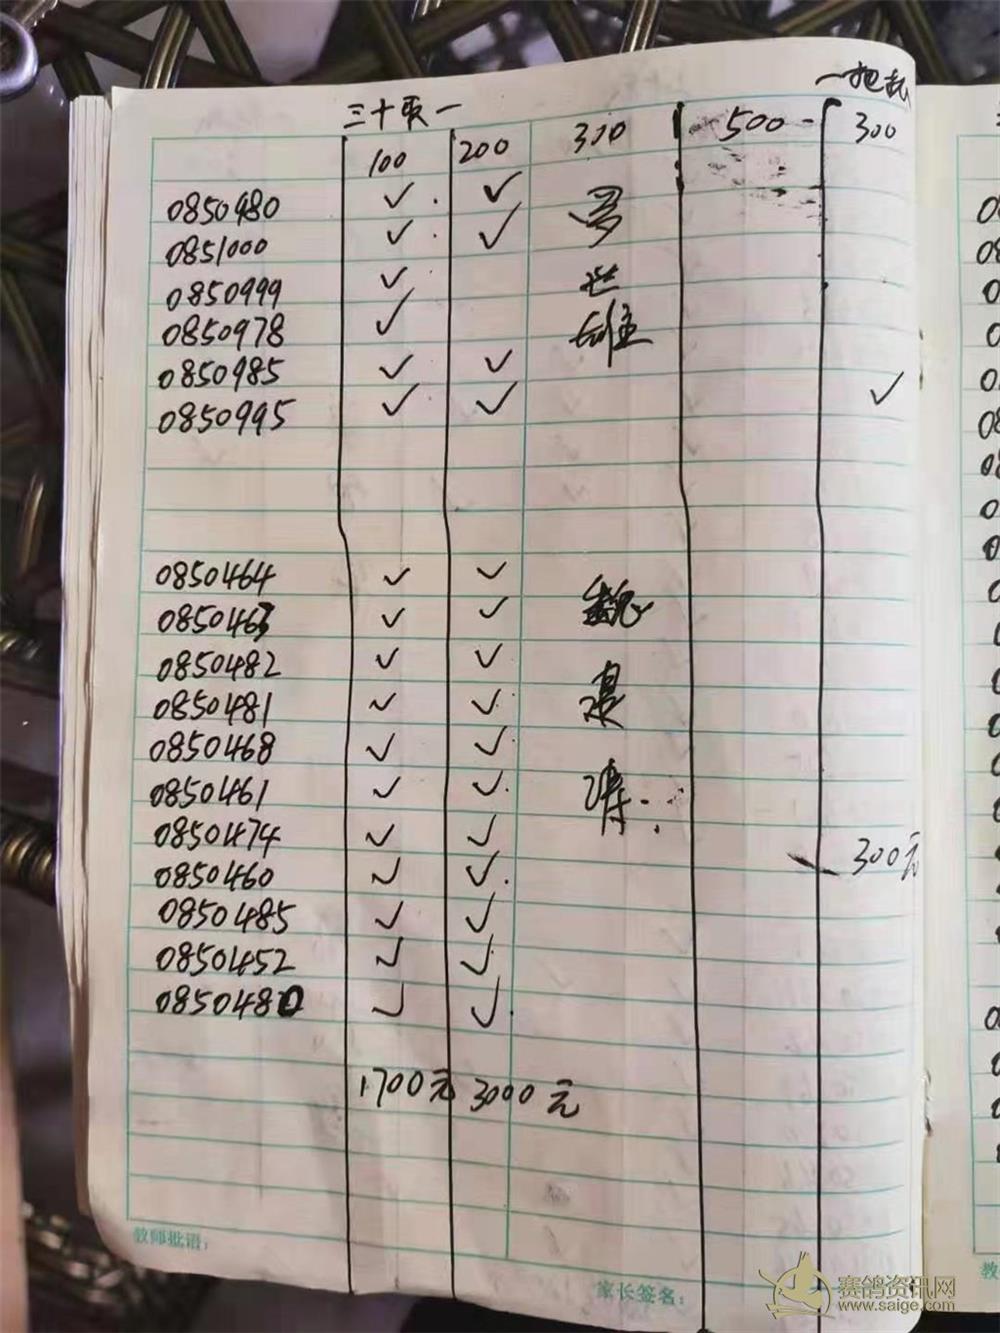 一把抓
三十取一
100 200 300 500 300
0850980 ✓ ✓ 罗
0851000 ✓ ✓
0850999 ✓ 世
0850978 ✓ 雄
0850985 ✓ ✓
0850995 ✓ ✓ ✓
0850464 ✓ ✓ 魏
0850463 ✓ ✓
0850482 ✓ ✓
0850481 ✓ ✓
0850468 ✓ ✓
0850461 ✓ ✓
0850474 ✓ ✓ 300元
0850460 ✓ ✓
0850485 ✓ ✓
0850452 ✓ ✓
0850480 ✓ ✓
1700元 3000元
教师批语:
家长签名:
赛鸽资讯网
www.saige.com